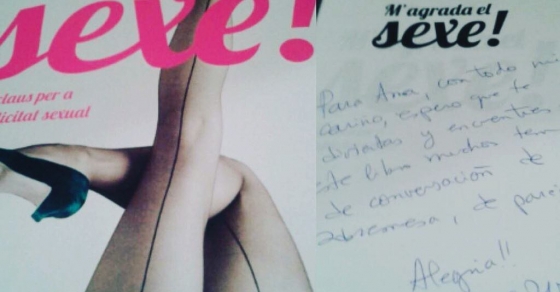 sexe!
claus per a
licitat sexual
M'agrada el
sexe!
Para Anna, con todo mi
cariño, espero que te
diviertas y encuentres en
este libro muchos tem
de conversación de
sobremesa, de pare
Alegria!!